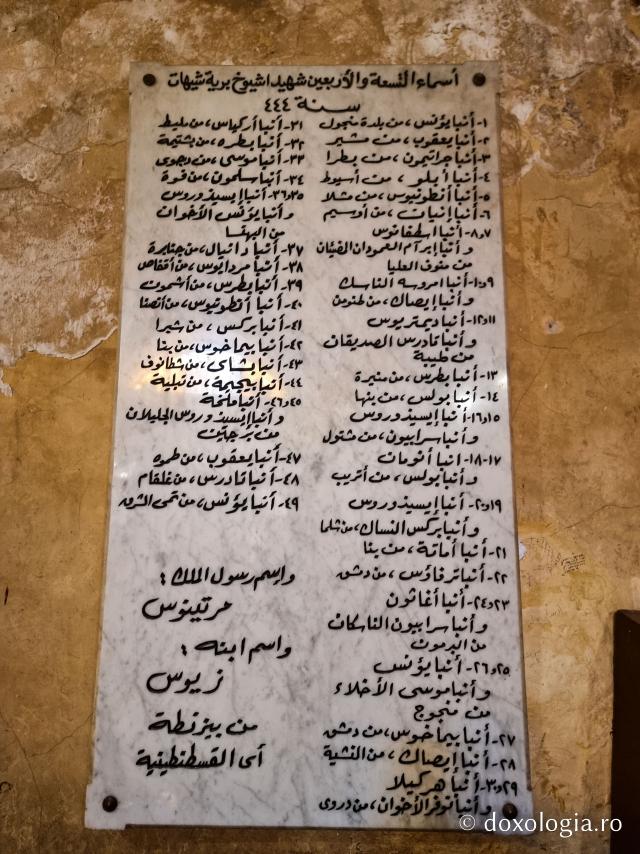 أسماء التسعة والأربعين شهيدا شيوخ برية شيهات
سنة ٤٤٤
١- أنبا يؤنس، من بلدة منجول
٢- أنبا يعقوب، من مشير
٣- أنبا جراتيمون، من بطرا
٤- أنبا أبللو، من أسيوط
٥- أنبا أنطونيوس، من مشلا
٦- أنبا إتيات، من أوسيم
٧و٨- أنبا اسطفانوس
وأنبا إبرآم العمودان المضيئان
من منوف العليا
٩و١٠- أنبا امروسه الناسك
وأنبا إيصاك، من لهنومن
١١و١٢- أنبا ديمتريوس
وأنبا تادرس الصديقان
من طيبة
١٣- أنبا بطرس، من منيرة
١٤- أنبا بولس، من بنها
١٥و١٦- أنبا إيسيذوروس
وأنبا سرابيون، من شتول
١٧-١٨- انبا أنومان
وأنبا بولس، من أتريب
١٩و٢٠- أنبا إيسيذوروس
وأنبا بركس النساك، من شلما
٢١- أنبا أماتة، من بنا
٢٢- أنبا ترفاؤس، من دمشق
٢٣و٢٤- أنبا أغاثون
وأنبا سرابيون الناسكان
من البرمون
٢٥و٢٦- أنبا يؤنس
وأنبا موسى الأخلاء
من منجوج
٢٧- أنبا بيماخوس، من دمشق
٢٨- أنبا إيصاك، من النشية
٢٩و٣٠- أنبا هركيلا
وأنبا نوفر الأخوان، من دروى
٣١- أنبا أركياس، من مليط
٣٢- أنبا بطره، من بشتيمة
٣٣- أنبا موسى، من دجوى
٣٤- أنبا سلمون، من قوة
٣٥و٣٦- أنبا إيسيذوروس
وأنبا يؤنس الأخوان
من البهنسا
٣٧- أنبا دانيال، من جنايرة
٣٨- أنبا مردايوس، من أقفاص
٣٩- أنبا بطرس، من أشمون
٤٠- أنبا أنطونيوس، من أنصنا
٤١- أنبا بركس، من شبرا
٤٢- أنبا بيماخوس، من بنا
٤٣- أنبا بشاى، من شطانوف
٤٤- أنبا بيجيمة، من تبلية
٤٥و٤٦- أنبا ملخة
وأنبا إيسيذوروس الجليلان
من برجلين
٤٧- أنبا يعقوب، من طموه
٤٨- أنبا تادرس، من غلقام
٤٩- أنبا يؤنس، من تمى الشرق
وإسم رسول الملك:
مرتينوس
واسم ابنه:
زيوس
من بيزنطة
أى القسطنطينية
© doxologia.ro